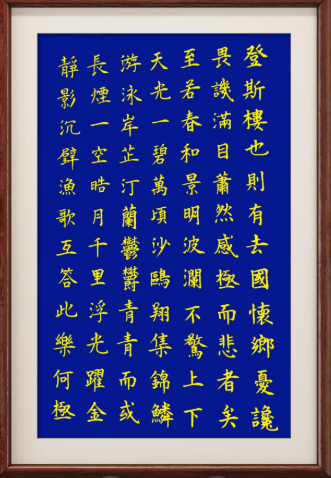 登斯樓也則有去國懷鄉憂讒
畏譏滿目蕭然感極而悲者矣
至若春和景明波瀾不驚上下
天光一碧萬頃沙鷗翔集錦鱗
游泳岸芷汀蘭鬱鬱青青而或
長煙一空皓月千里浮光躍金
靜影沉璧漁歌互答此樂何極